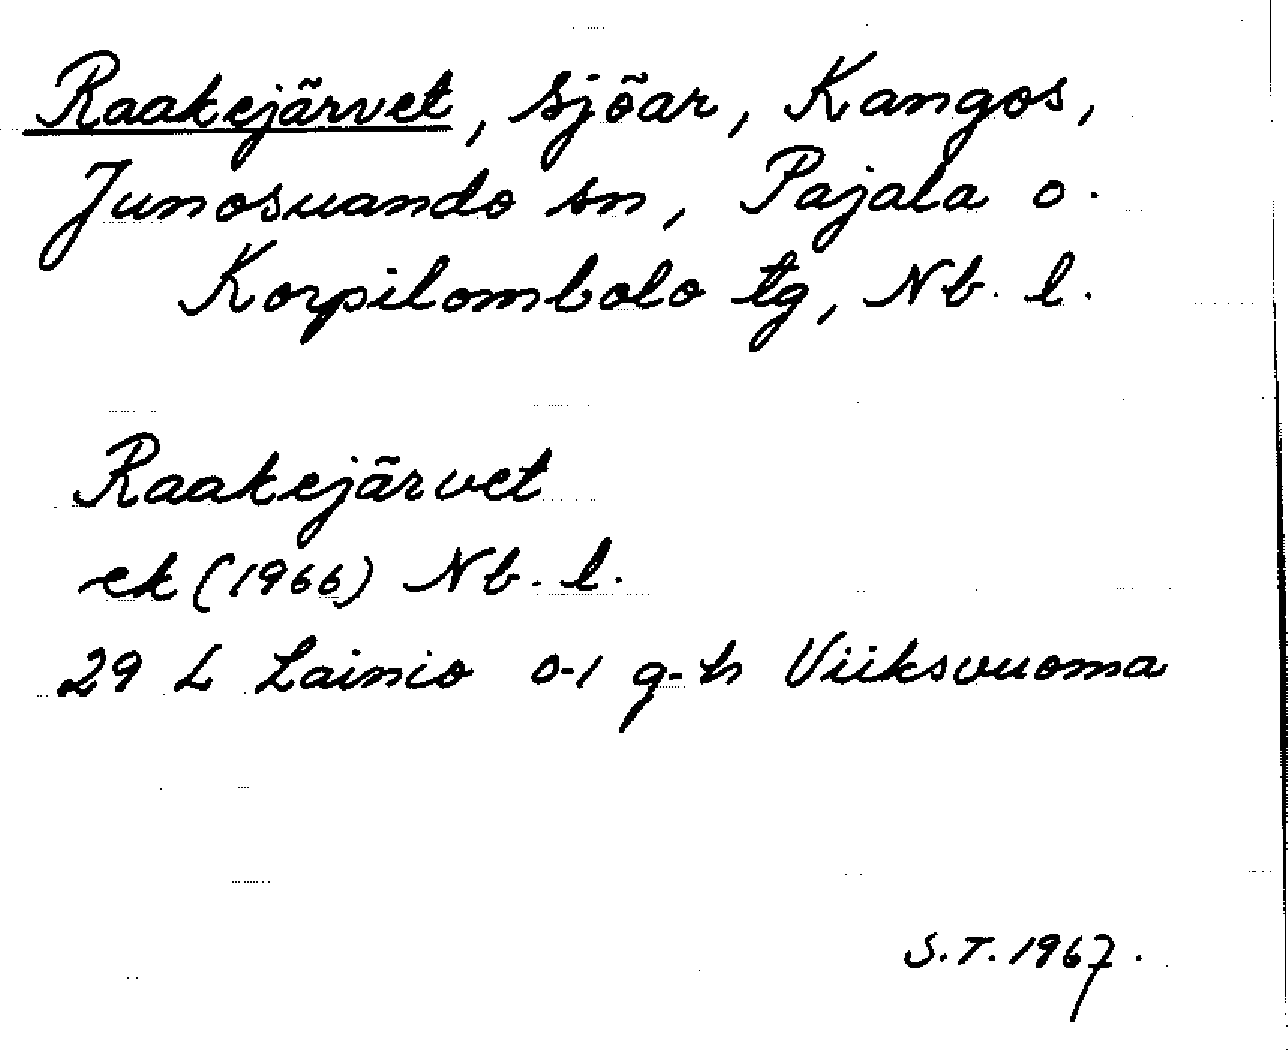 Raakejärvet, sjöar, Kangos,
Junosuando sn, Pajala o.
Korpilombolo tg, Nb. l.
Raakejärvet
ek (1966) Nb. l.
29 L Lainio 0-1 g-h Viiksvuoma
S.T. 1967.